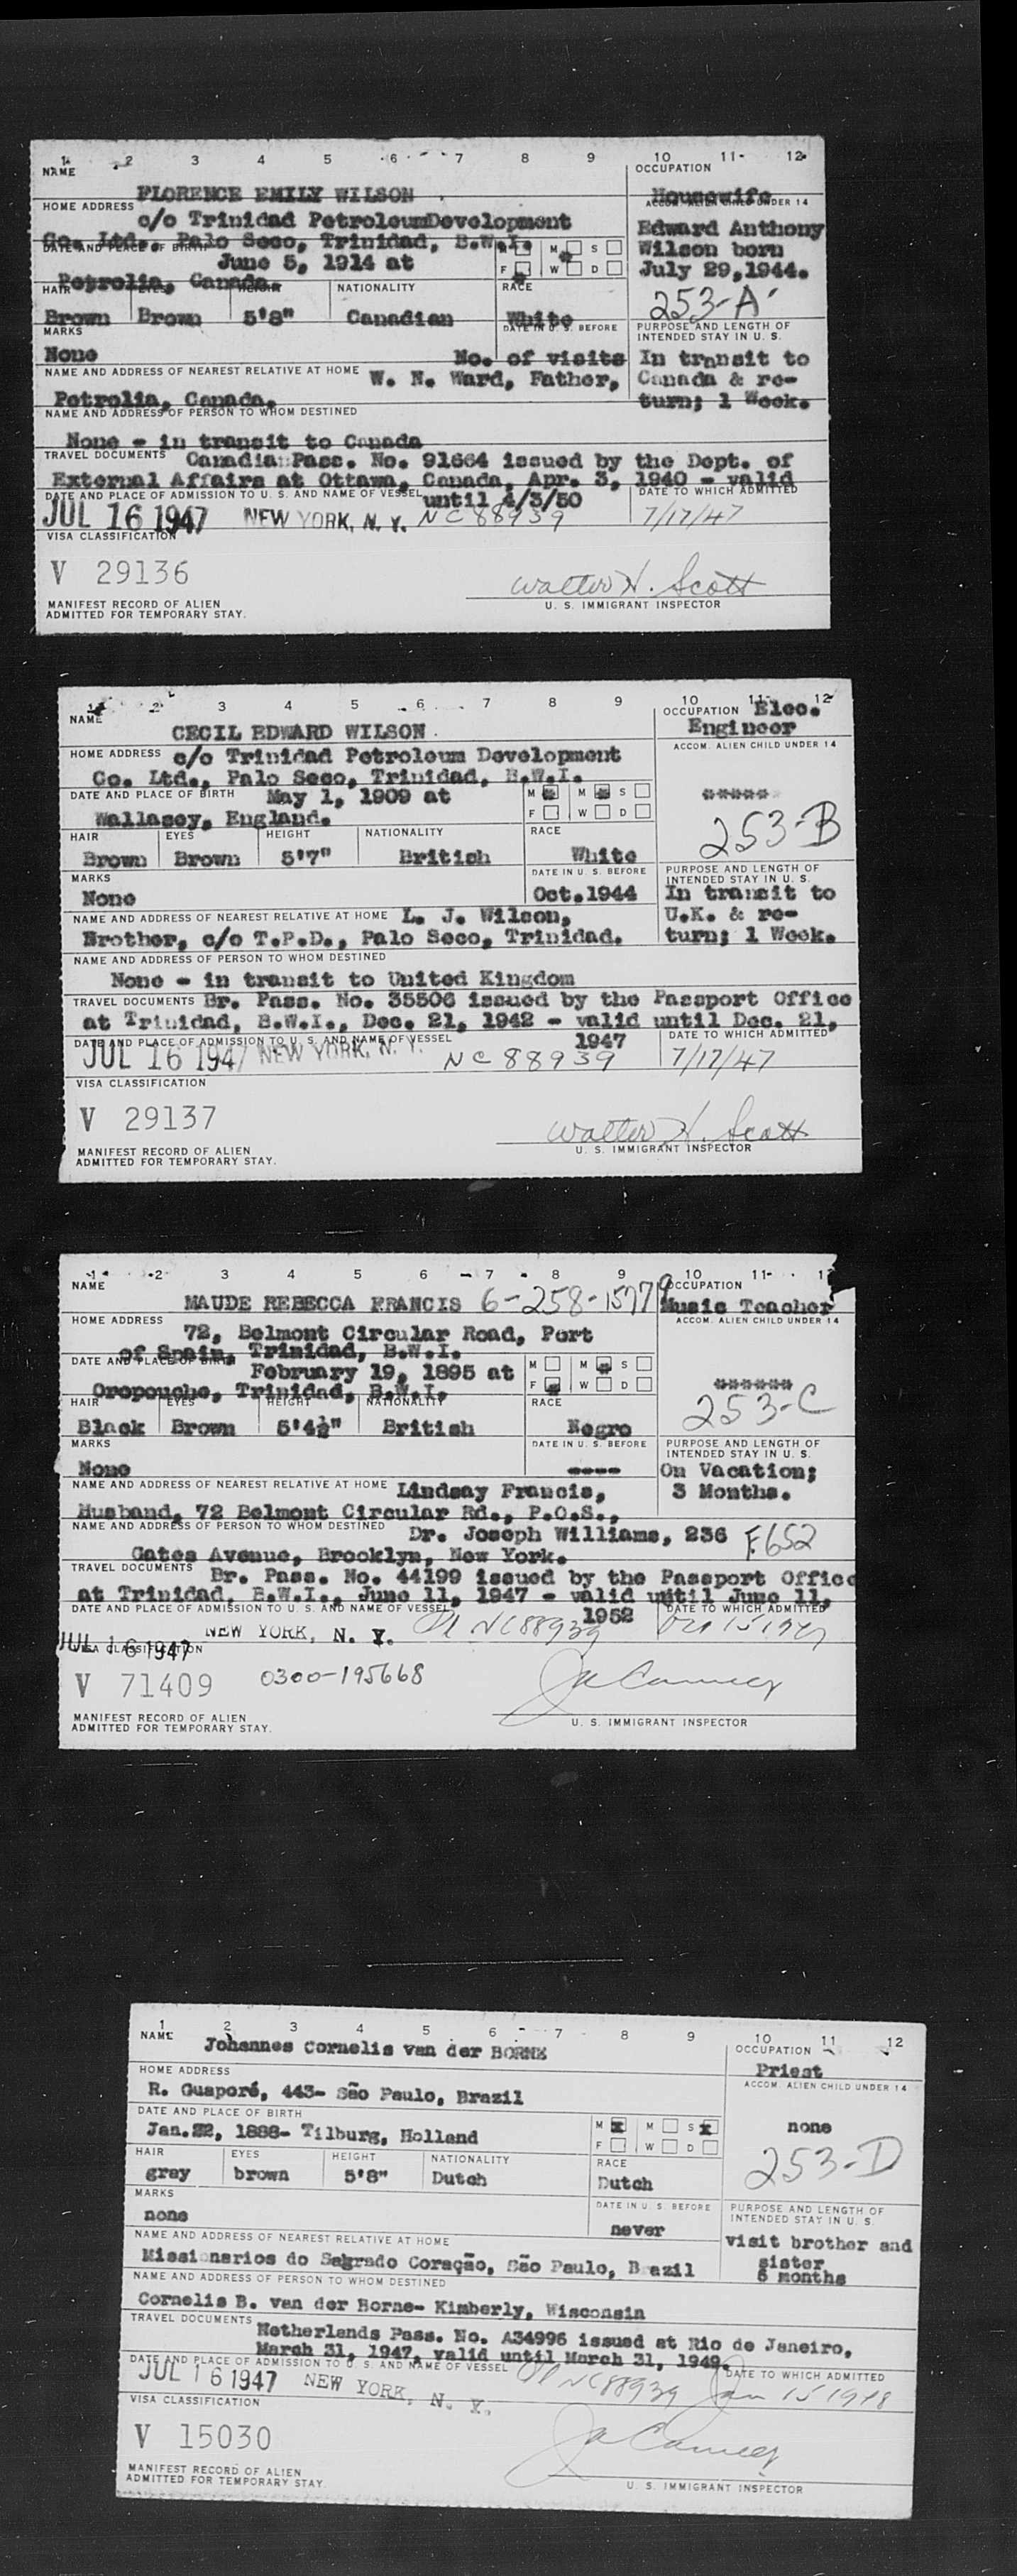 1 2 3 4 5 6 7 8 9 10 11 12
NAME
OCCUPATION
FLORENCE EMILY WILSON
Housewife
HOME ADDRESS
ACCOM. ALIEN CHILD UNDER 14
c/o Trinidad PetroleumDevelopment
Co. Ltd., Palo Seco, Trinidad, B.W.I.
Edward Anthony
Wilson born
July 29,1944.
DATE AND PLACE OF BIRTH
June 5, 1914 at
Petrolia, Canada.
M M S
F W D
253-A
HAIR EYES HEIGHT NATIONALITY RACE
Brown Brown 5'8" Canadian White
MARKS
DATE IN U. S. BEFORE
PURPOSE AND LENGTH OF
INTENDED STAY IN U. S.
None
No. of visits
In transit to
Canada & re-
turn; 1 Week.
NAME AND ADDRESS OF NEAREST RELATIVE AT HOME W. N. Ward, Father,
Petrolia, Canada.
NAME AND ADDRESS OF PERSON TO WHOM DESTINED
None - in transit to Canada
TRAVEL DOCUMENTS Canadian Pass. No. 91664 issued by the Dept. of
External Affairs at Ottawa, Canada, Apr. 3, 1940 - valid
until 4/3/50
DATE AND PLACE OF ADMISSION TO U. S. AND NAME OF VESSEL
DATE TO WHICH ADMITTED
JUL 16 1947 NEW YORK, N. Y. NC 88939 7/17/47
VISA CLASSIFICATION
V 29136
Walter H. Scott
MANIFEST RECORD OF ALIEN
ADMITTED FOR TEMPORARY STAY.
U. S. IMMIGRANT INSPECTOR
1 2 3 4 5 6 7 8 9 10 11 12
NAME
OCCUPATION Elec.
Engineer
CECIL EDWARD WILSON
HOME ADDRESS c/o Trinidad Petroleum Development
Co. Ltd., Palo Seco, Trinidad, B.W.I.
ACCOM. ALIEN CHILD UNDER 14
*****
DATE AND PLACE OF BIRTH May 1, 1909 at
Wallasey, England.
M M S
F W D
253-B
HAIR EYES HEIGHT NATIONALITY RACE
Brown Brown 5'7" British White
MARKS
DATE IN U. S. BEFORE
PURPOSE AND LENGTH OF
INTENDED STAY IN U. S.
None
Oct.1944
In transit to
U.K. & re-
turn; 1 Week.
NAME AND ADDRESS OF NEAREST RELATIVE AT HOME L. J. Wilson,
Brother, c/o T.P.D., Palo Seco, Trinidad.
NAME AND ADDRESS OF PERSON TO WHOM DESTINED
None - in transit to United Kingdom
TRAVEL DOCUMENTS Br. Pass. No. 35506 issued by the Passport Office
at Trinidad, B.W.I., Dec. 21, 1942 - valid until Dec. 21,
1947
DATE AND PLACE OF ADMISSION TO U. S. AND NAME OF VESSEL
DATE TO WHICH ADMITTED
JUL 16 1947 NEW YORK, N. Y. NC 88939 7/17/47
VISA CLASSIFICATION
V 29137
Walter H. Scott
MANIFEST RECORD OF ALIEN
ADMITTED FOR TEMPORARY STAY.
U. S. IMMIGRANT INSPECTOR
1 2 3 4 5 6 7 8 9 10 11 1
NAME
OCCUPATION
MAUDE REBECCA FRANCIS 6-258-15779
Music Teacher
HOME ADDRESS
ACCOM. ALIEN CHILD UNDER 14
72, Belmont Circular Road, Port
of Spain, Trinidad, B.W.I.
DATE AND PLACE OF BIRTH
February 19, 1895 at
Oropouche, Trinidad, B.W.I.
M M S
F W D
******
253-C
HAIR EYES HEIGHT NATIONALITY RACE
Black Brown 5'4½" British Negro
MARKS
DATE IN U. S. BEFORE
PURPOSE AND LENGTH OF
INTENDED STAY IN U. S.
None
----
On Vacation;
3 Months.
NAME AND ADDRESS OF NEAREST RELATIVE AT HOME Lindsay Francis,
Husband, 72 Belmont Circular Rd., P.O.S.,
NAME AND ADDRESS OF PERSON TO WHOM DESTINED Dr. Joseph Williams, 236
F652
Gates Avenue, Brooklyn, New York.
TRAVEL DOCUMENTS Br. Pass. No. 44199 issued by the Passport Office
at Trinidad, B.W.I., June 11, 1947 - valid until June 11,
1952
DATE AND PLACE OF ADMISSION TO U. S. AND NAME OF VESSEL
DATE TO WHICH ADMITTED
JUL 16 1947 NEW YORK, N. Y. Pl NC88939 Oct 15 1947
VISA CLASSIFICATION
V 71409 0300-195668
MANIFEST RECORD OF ALIEN
ADMITTED FOR TEMPORARY STAY.
U. S. IMMIGRANT INSPECTOR
1 2 3 4 5 6 7 8 9 10 11 12
NAME
OCCUPATION
Johannes Cornelis van der BORNE
Priest
HOME ADDRESS
ACCOM. ALIEN CHILD UNDER 14
R. Guaporé, 443- São Paulo, Brazil
none
DATE AND PLACE OF BIRTH
Jan.22, 1888- Tilburg, Holland
M X M S X
F W D
253-D
HAIR EYES HEIGHT NATIONALITY RACE
gray brown 5'8" Dutch Dutch
MARKS
DATE IN U. S. BEFORE
PURPOSE AND LENGTH OF
INTENDED STAY IN U. S.
none
never
visit brother and
sister
6 months
NAME AND ADDRESS OF NEAREST RELATIVE AT HOME
Missionarios do Sagrado Coração, São Paulo, Brazil
NAME AND ADDRESS OF PERSON TO WHOM DESTINED
Cornelis B. van der Borne- Kimberly, Wisconsin
TRAVEL DOCUMENTS
Netherlands Pass. No. A34996 issued at Rio de Janeiro,
March 31, 1947, valid until March 31, 1949.
DATE AND PLACE OF ADMISSION TO U. S. AND NAME OF VESSEL
DATE TO WHICH ADMITTED
JUL 16 1947 NEW YORK, N. Y. Pl NC88939 Jan 15 1948
VISA CLASSIFICATION
V 15030
MANIFEST RECORD OF ALIEN
ADMITTED FOR TEMPORARY STAY.
U. S. IMMIGRANT INSPECTOR